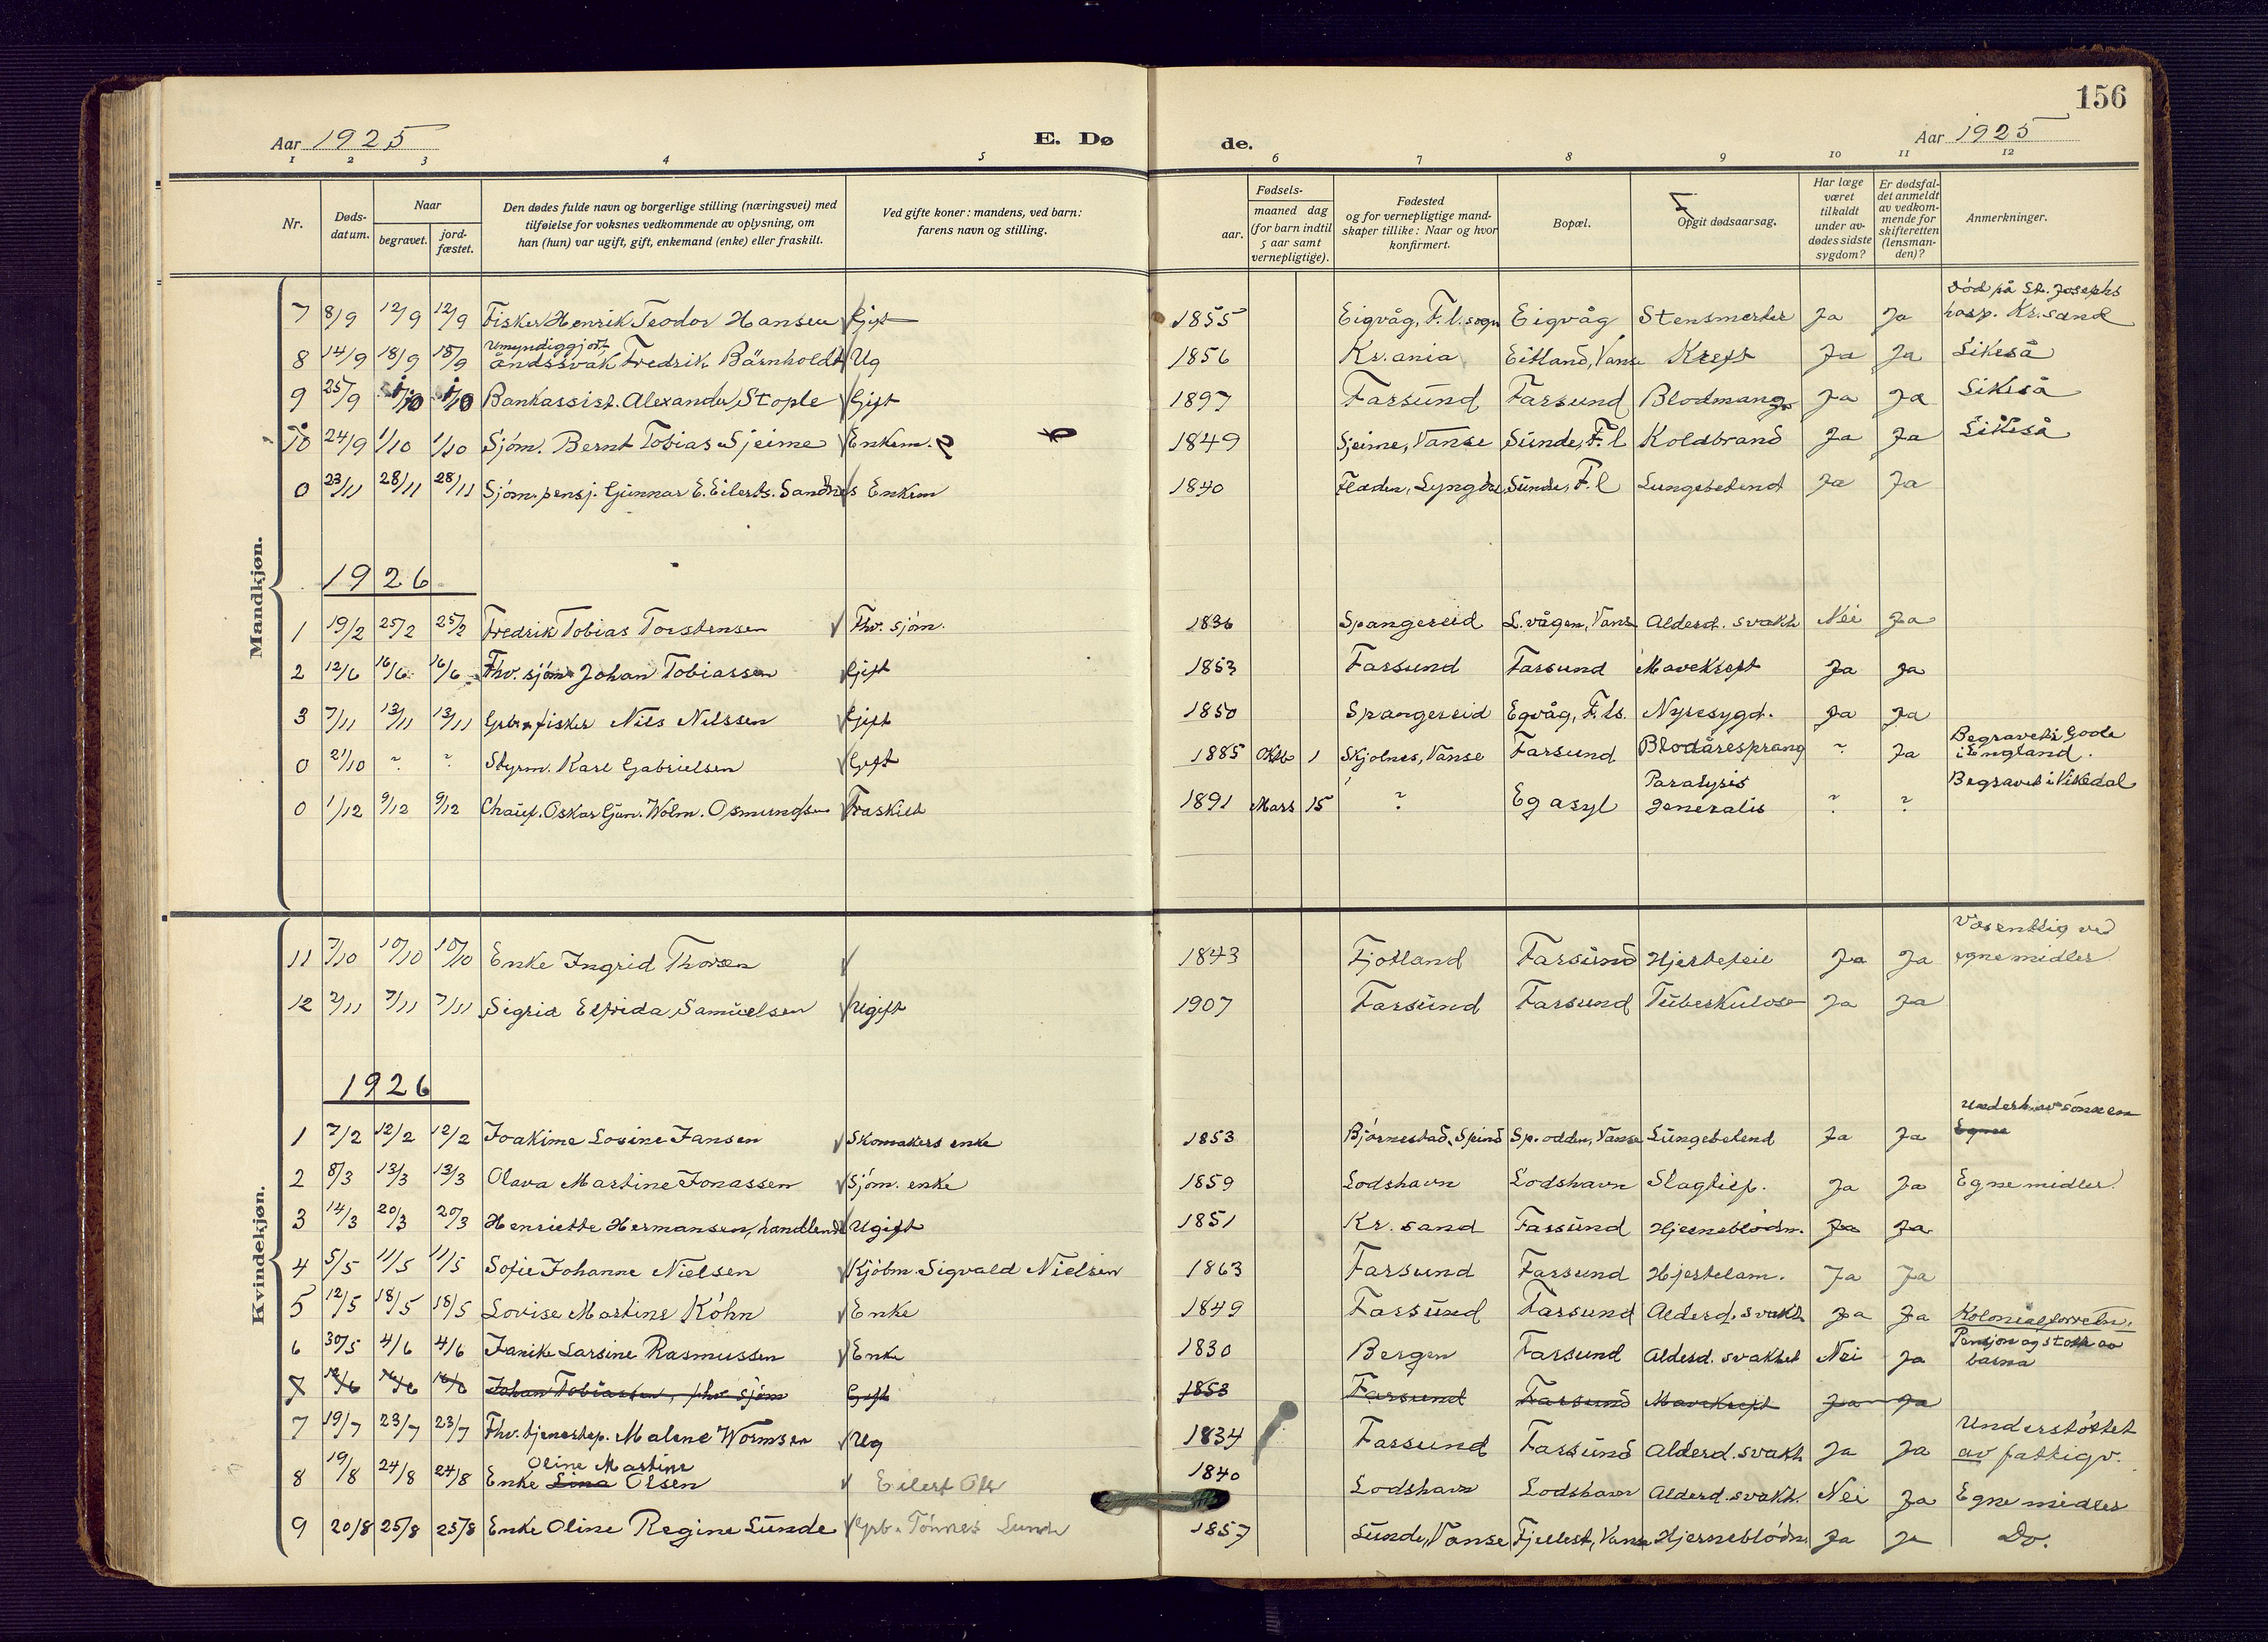 156
Aar 1925 E. Dø de. Aar 1925
1 2 3 4 5 6 7 8 9 10 11 12
Nr. Døds-datum. Naar begravet. jord-fæstet. Den dødes fulde navn og borgerlige stilling (næringsvei) med tilføielse for voksnes vedkommende av oplysning, om han (hun) var ugift, gift, enkemand (enke) eller fraskilt. Ved gifte koner: mandens, ved barn: farens navn og stilling. Fødsels- aar. maaned dag (for barn indtil 5 aar samt vernepligtige). Fødested og for vernepligtige mandskaper tillike: Naar og hvor konfirmert. Bopæl. Opgit dødsaarsag. Har læge været tilkaldt under avdødes sidste sygdom? Er dødsfaldet anmeldt av vedkommende for skifteretten (lensmanden)? Anmerkninger.
Mandkjøn.
7 8/9 12/9 12/9 Fisker Henrik Teodor Hansen Gift 1855 Eigvåg, F. l. sogn Eigvåg Stensmerter Ja Ja Död på St. Josephs hosp. Kr.sand
8 14/9 18/9 18/9 Umyndiggjort åndssvak Fredrik Bärnholdt Ug 1856 Kr.ania Eitland, Vanse Kreft Ja Ja Likeså
9 25/9 1/10 1/10 Bankassist. Alexander Stople Gift 1897 Farsund Farsund Blodmang. Ja Ja Likeså
10 24/9 1/10 1/10 Sjöm. Bernt Tobias Sjeime Enkem. 1849 Sjeime, Vanse Sunde, F. l Koldbrand Ja Ja Likeså
0 23/11 28/11 28/11 Sjöm. pensj. Gunnar E. Eilerts. Sandnes Enkem 1840 Sunde, F. l Lungebetend Ja Ja
1926
1 19/2 25/2 25/2 Fredrik Tobias Torstensen Fhv. sjöm. 1836 Spangereid L. vågen, Vans Alderd. svakh Nei Ja
2 12/6 16/6 16/6 Fhv. sjöm. Johan Tobiassen Gift 1853 Farsund Farsund Mavekreft Ja Ja
3 7/11 13/11 13/11 Gbr. fisker Nils Nilssen Gift 1850 Spangereid Egvåg, F. ls. Nyresygd. Ja Ja
0 21/10 ? ? Styrm. Karl Gabrielsen Gift 1885 Oktb 1 Skjolnes, Vanse Farsund Blodåresprang ? Ja Begravet i Goole i England.
0 1/12 9/12 9/12 Chauf. Oskar Gun. Wolm. Osmundsen Fraskilt 1891 Mars 15 ? Eg asyl Paralysis generalis ? ? Begravet i Vikedal
Kvindekjøn.
11 7/10 10/10 10/10 Enke Ingrid Thorsen 1843 Fjotland Farsund Hjertefeil Ja Ja Vosentlig ved egne midler
12 2/11 7/11 7/11 Sigrid Elfrida Samuelsen Ugift 1907 Farsund Farsund Tuberkulose Ja Ja
1926
1 7/2 12/2 12/2 Joakime Lovine Jansen Skomakers enke 1853 Björnestad, Spind Sp. odden, Vanse Lungebetend Ja Ja Underh. av sönnen Egne
2 8/3 13/3 13/3 Olava Martine Jonassen Sjöm. enke 1859 Lodshavn Lodshavn Slagtilf. Ja Ja Egne midler.
3 14/3 20/3 20/3 Henriette Hermansen, handlende Ugift 1851 Kr. sand Farsund Hjerneblödn. Ja Ja
4 5/5 11/5 11/5 Sofie Johanne Nielsen Kjöbm. Sigvald Nielsen 1863 Farsund Farsund Hjertelam. Ja Ja
5 12/5 18/5 18/5 Lovise Martine Köhn Enke 1849 Farsund Farsund Alderd. svakh Ja Ja Kolonialforretn.
6 30/5 4/6 4/6 Janike Larsine Rasmussen Enke 1830 Bergen Farsund Alderd. svakhet Nei Ja Pensjon og støtte av barna
7 12/6 16/6 16/6 Johan Tobiassen, fhv. sjöm Gift 1853 Farsund Farsund Mavekreft Ja Ja
7 19/7 23/7 23/7 Fhv. tjenestep. Malene Wormsen Ug 1834 Farsund Farsund Alderd. svakh Ja Ja Understöttet av fattigv.
8 19/8 24/8 24/8 Enke Lina Oline Martine Olsen Eilert Ols 1840 Lodshavn Lodshavn Alderd. svakh. Nei Ja Egne midler
9 20/8 25/8 25/8 Enke Oline Regine Sunde Gbr. Tönnes Sunde 1857 Sunde, Vanse Fjellest, Vanse Hjerneblödn Ja Ja Do.